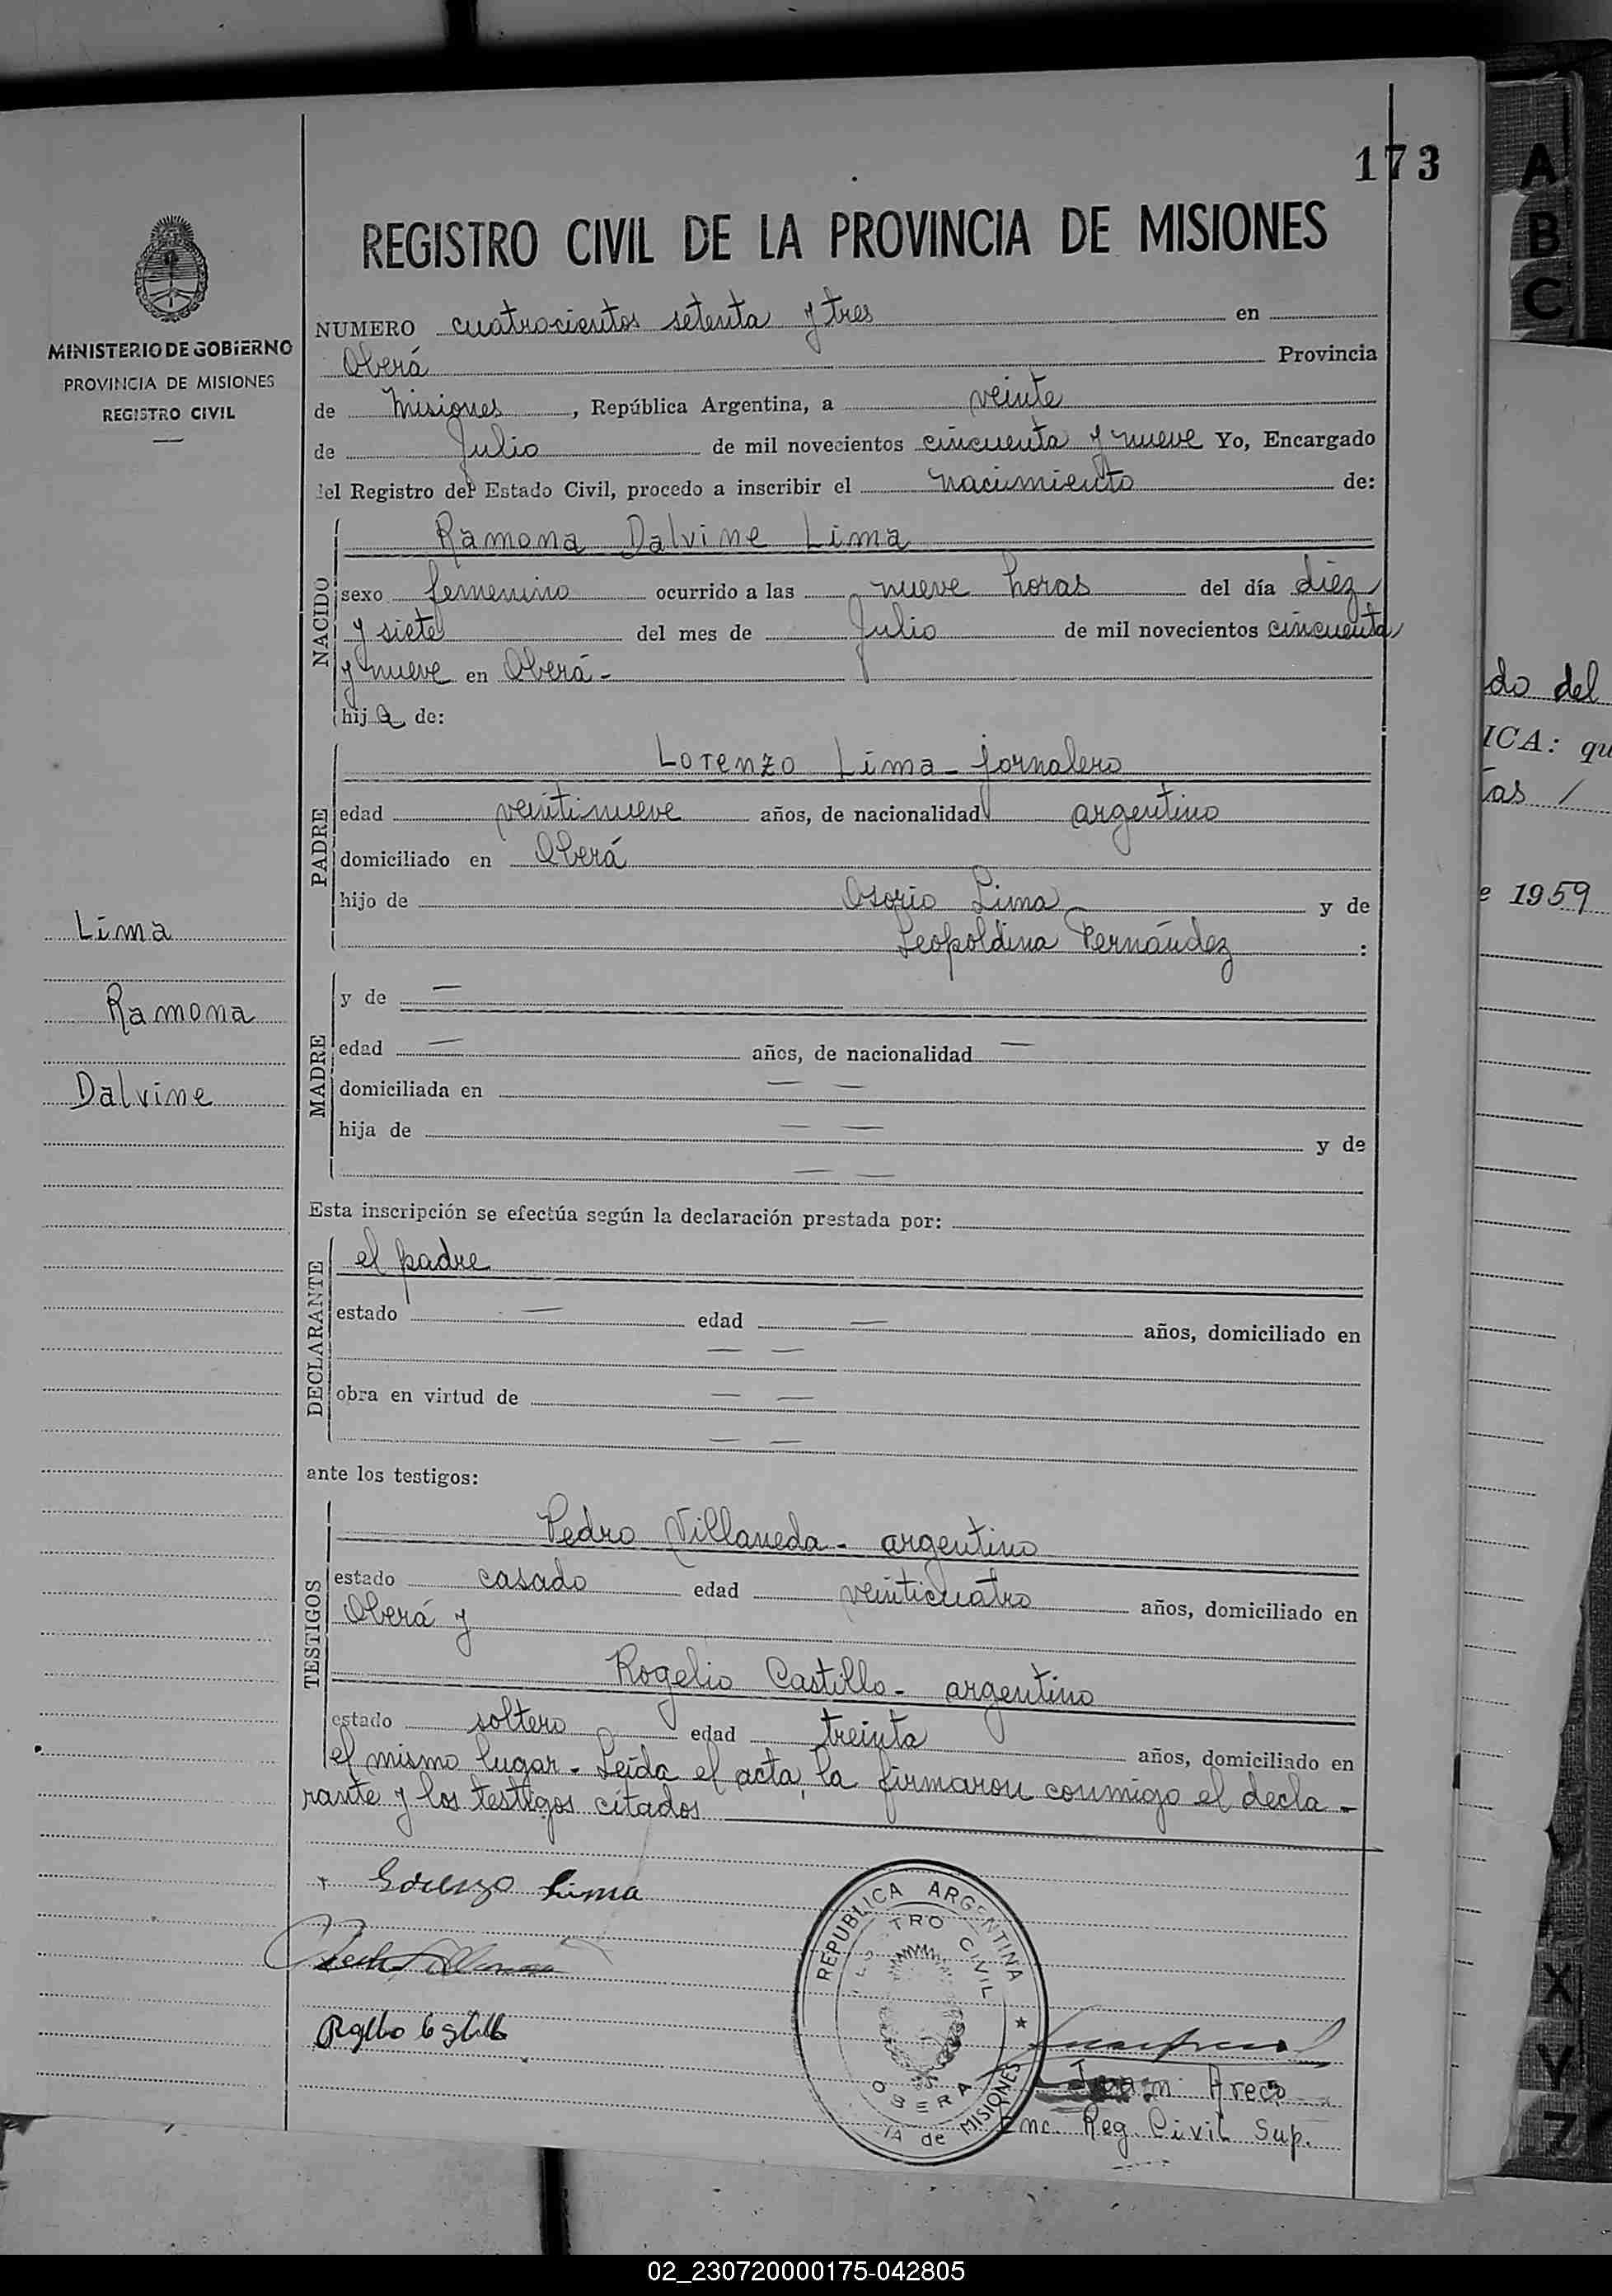 173
REGISTRO CIVIL DE LA PROVINCIA DE MISIONES
MINISTERIO DE GOBIERNO
PROVINCIA DE MISIONES
REGISTRO CIVIL
NUMERO cuatrocientos setenta y tres en
Oberá Provincia
de Misiones, República Argentina, a veinte
de Julio de mil novecientos cincuenta y nueve Yo, Encargado
del Registro del Estado Civil, procedo a inscribir el nacimiento de:
NACIDO
Ramona Dalvine Lima
sexo femenino ocurrido a las nueve horas del día diez
y siete del mes de Julio de mil novecientos cincuenta
y nueve en Oberá-
hija de:
PADRE
Lorenzo Lima - jornalero
edad veintinueve años, de nacionalidad argentino
domiciliado en Oberá
hijo de Osorio Lima y de
Leopoldina Fernández :
Lima
Ramona
Dalvine
MADRE
y de —
edad — años, de nacionalidad —
domiciliada en — —
hija de — — y de
— —
Esta inscripción se efectúa según la declaración prestada por:
DECLARANTE
el padre
estado — edad — años, domiciliado en
— —
obra en virtud de — —
— —
ante los testigos:
TESTIGOS
Pedro Villaneda - argentino
estado casado edad veinticuatro años, domiciliado en
Oberá y
Rogelio Castillo - argentino
estado soltero edad treinta años, domiciliado en
el mismo lugar - Leída el acta, la firmaron conmigo el decla-
rante y los testigos citados
Lorenzo Lima
REPUBLICA ARGENTINA
REGISTRO CIVIL
OBERA
de MISIONES
Juan Areco
Enc. Reg. Civil Sup.
do del
ICA: qu
tas /
e 1959
A
B
C
X
Y
Z
02_230720000175-042805